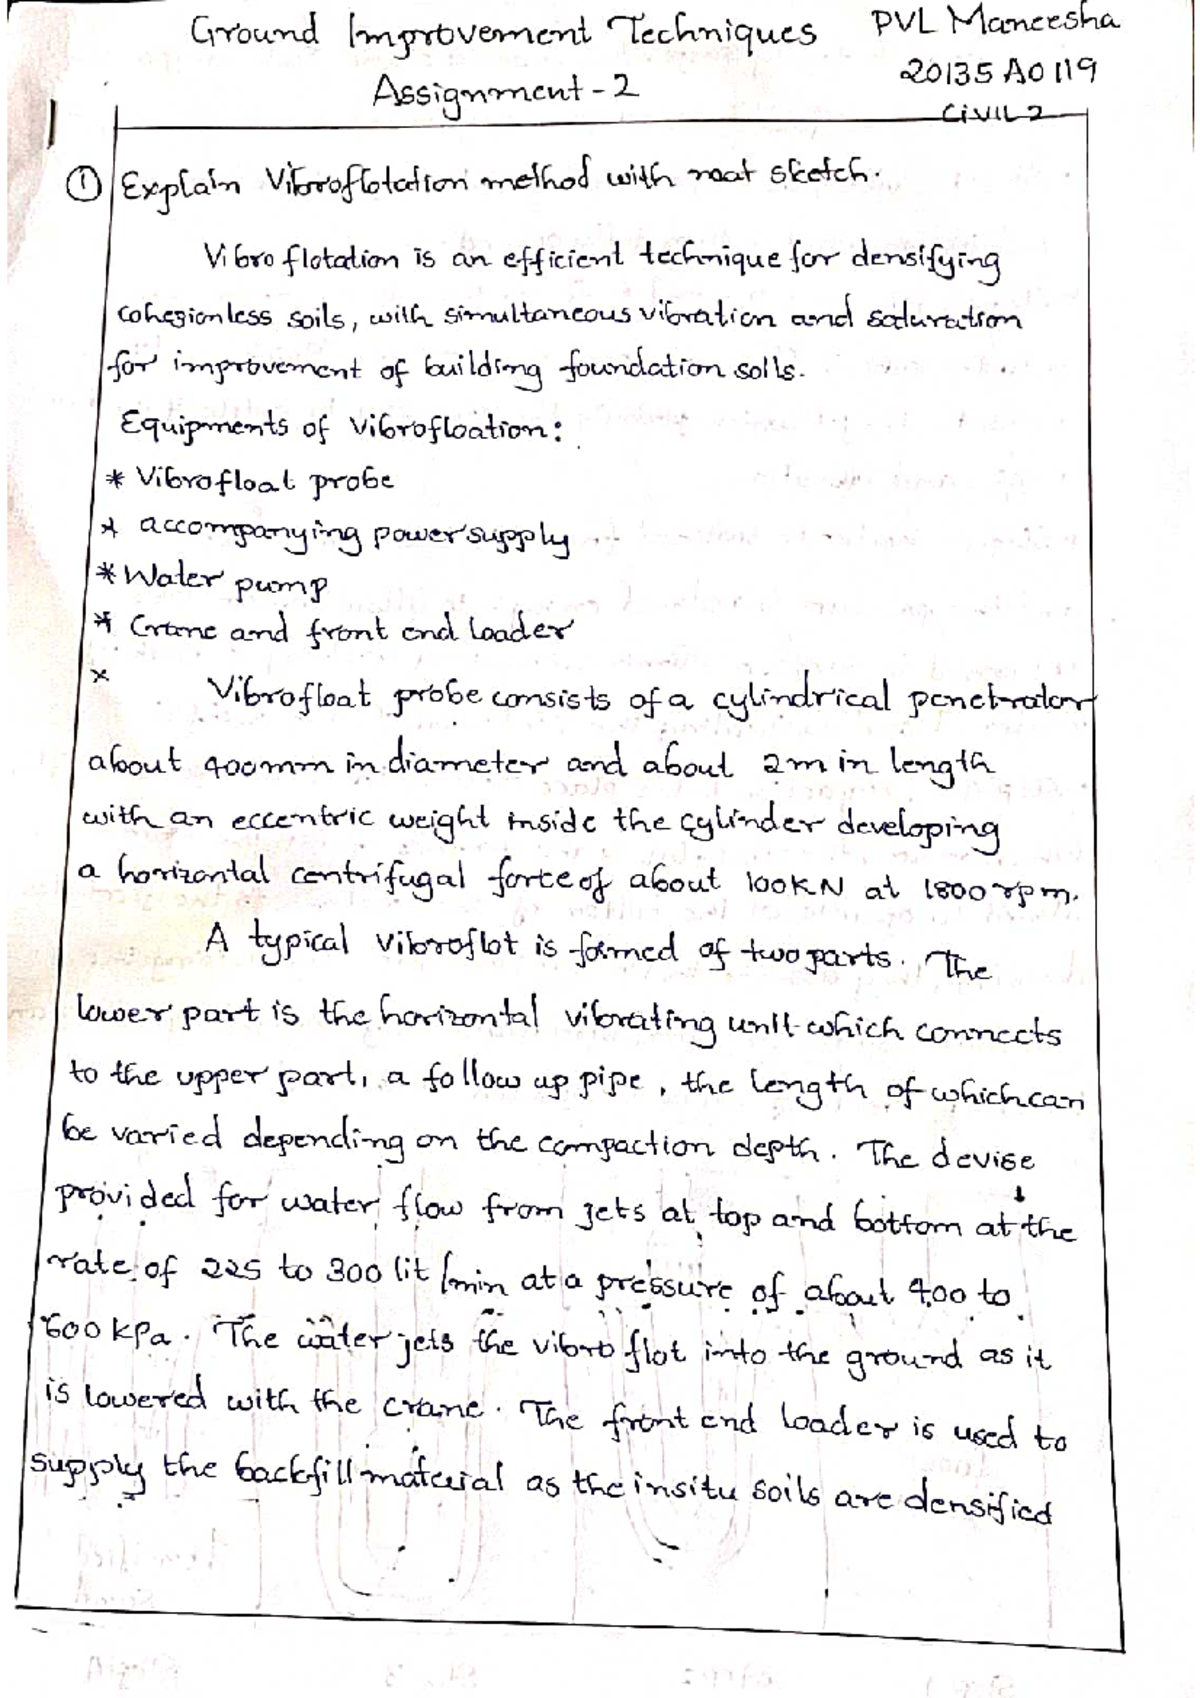 Ground Improvement Techniques
PVL Maneesha
Assignment-2
20135A0119
CIVIL 2
① Explain Vibroflotation method with neat sketch.
Vibro flotation is an efficient technique for densifying
cohesionless soils, with simultaneous vibration and saturation
for improvement of building foundation soils.
Equipments of Vibrofloation:
* Vibrofloat probe
* accompanying power supply
* Water pump
* Crane and front end loader
* Vibrofloat probe consists of a cylindrical penetrator
about 400mm in diameter and about 2m in length
with an eccentric weight inside the cylinder developing
a horizontal centrifugal force of about 100KN at 1800 rpm.
A typical vibroflot is formed of two parts. The
lower part is the horizontal vibrating unit which connects
to the upper part, a follow up pipe, the length of which can
be varied depending on the compaction depth. The devise
provided for water flow from jets at top and bottom at the
rate of 225 to 300 lit/min at a pressure of about 400 to
600 kPa. The water jets the vibro flot into the ground as it
is lowered with the crane. The front end loader is used to
supply the backfill material as the insitu soils are densified